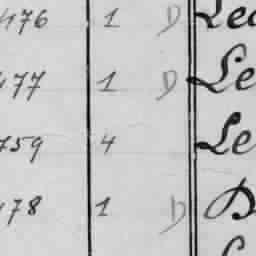 476 1 D Lec
477 1 D Le
759 4 Le
478 1 D D